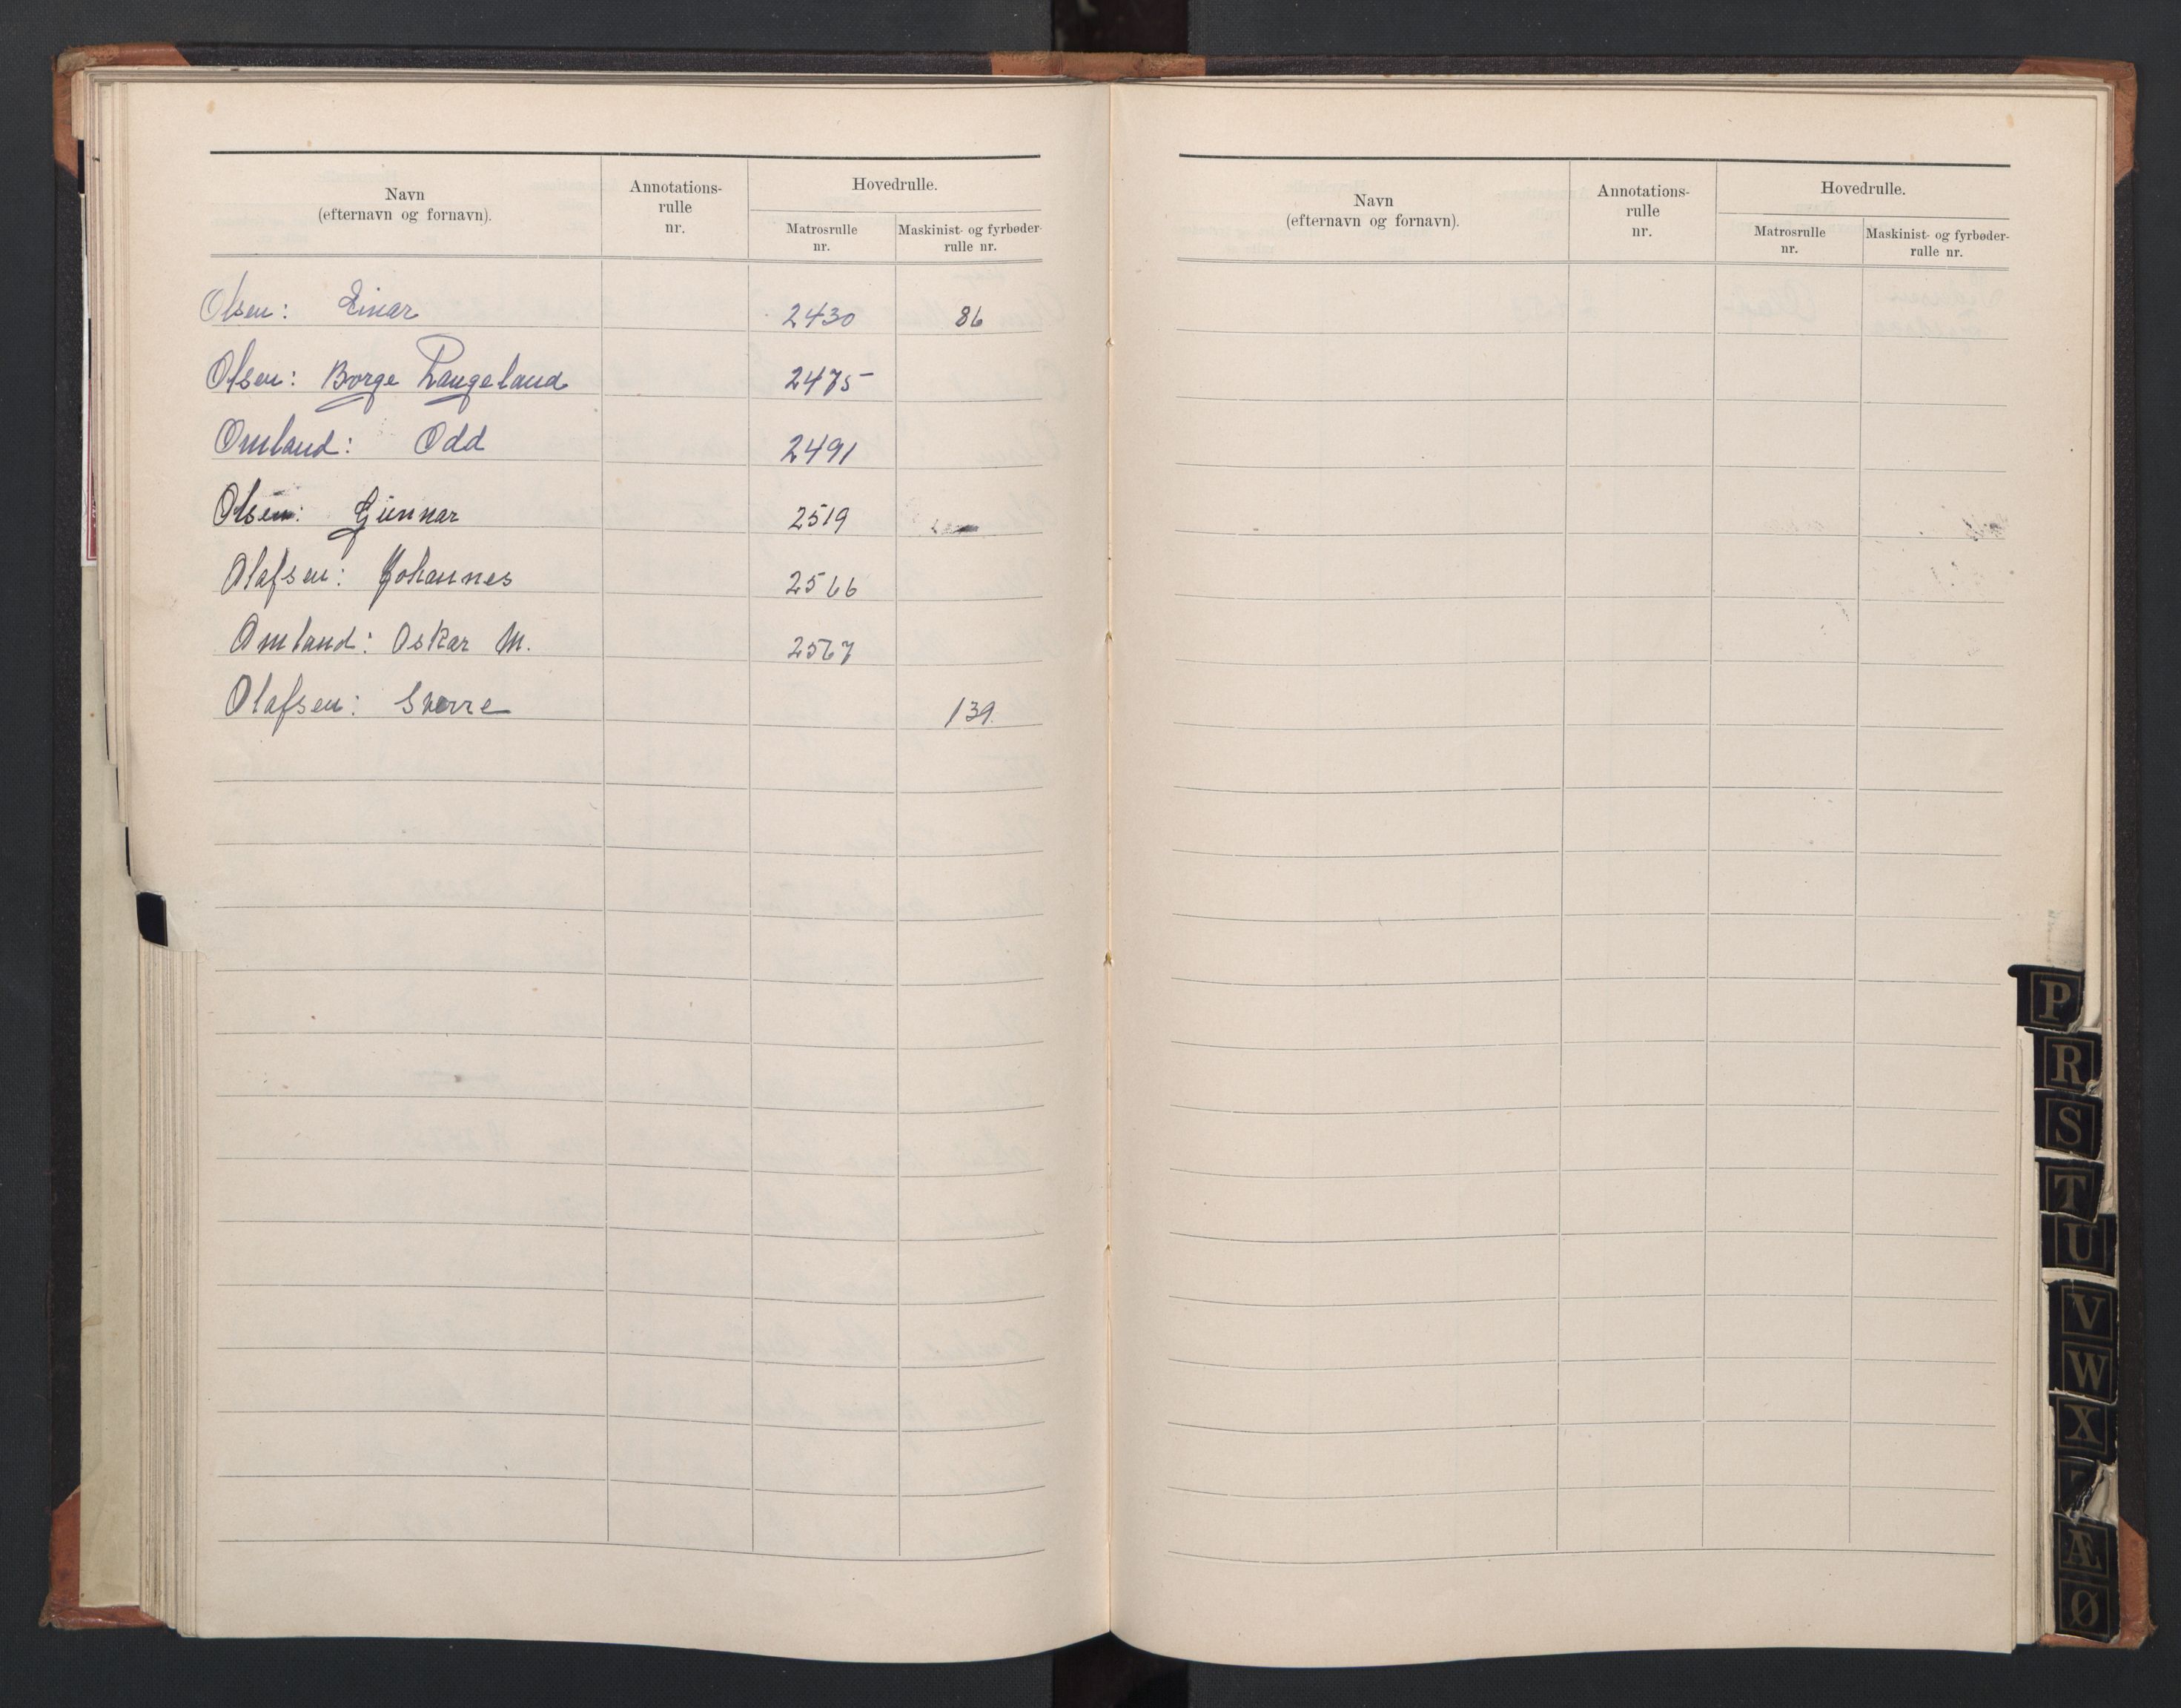 Navn
(efternavn og fornavn).
Annotations-
rulle
nr.
Hovedrulle.
Matrosrulle
nr.
Maskinist- og fyrbøder-
rulle nr.
Olsen: Einar 2430 86
Olsen: Borge Langeland 2475
Omland: Odd 2491
Olsen: Gunnar 2519
Olafsen: Johannes 2566
Omland: Oskar M. 2567
Olafsen: Sverre 139.
Navn
(efternavn og fornavn).
Annotations-
rulle
nr.
Hovedrulle.
Matrosrulle
nr.
Maskinist- og fyrbøder-
rulle nr.
P
R
S
T
U
V
W
X
Æ
Ø